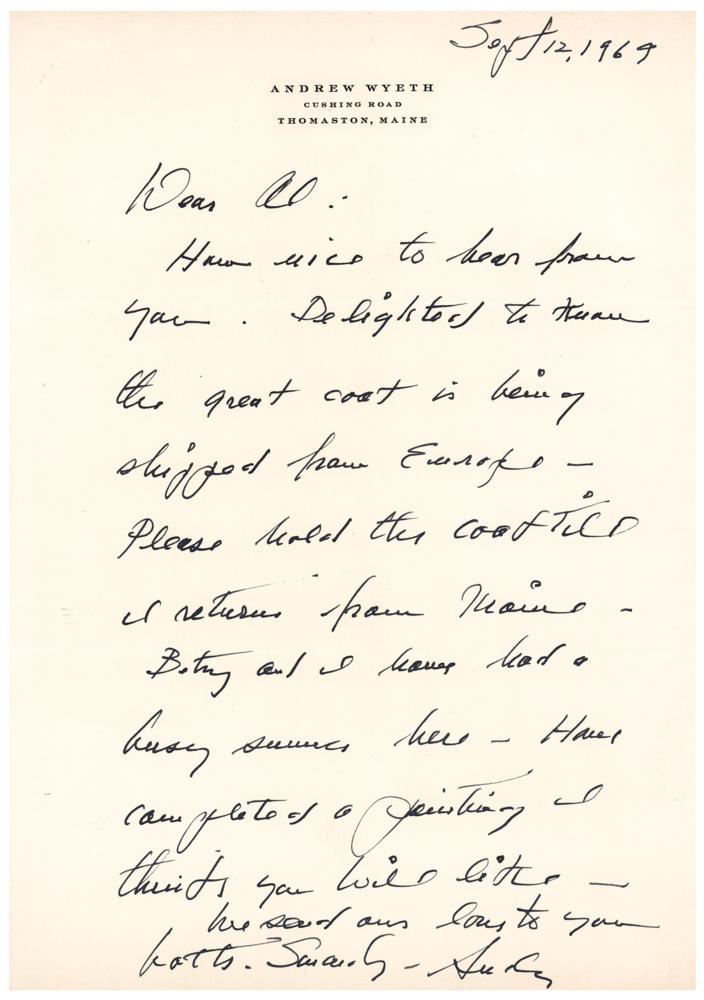 Sept 12, 1969
ANDREW WYETH
CUSHING ROAD
THOMASTON, MAINE
Dear Al:
How nice to hear from
you. Delighted to know
the great coat is being
shipped from Europe –
Please hold the coat till
I returns from Maine –
Betsy and I have had a
busy summer here – Have
completed a painting I
think you will like –
We send our love to you
both. Sincerely – Andy